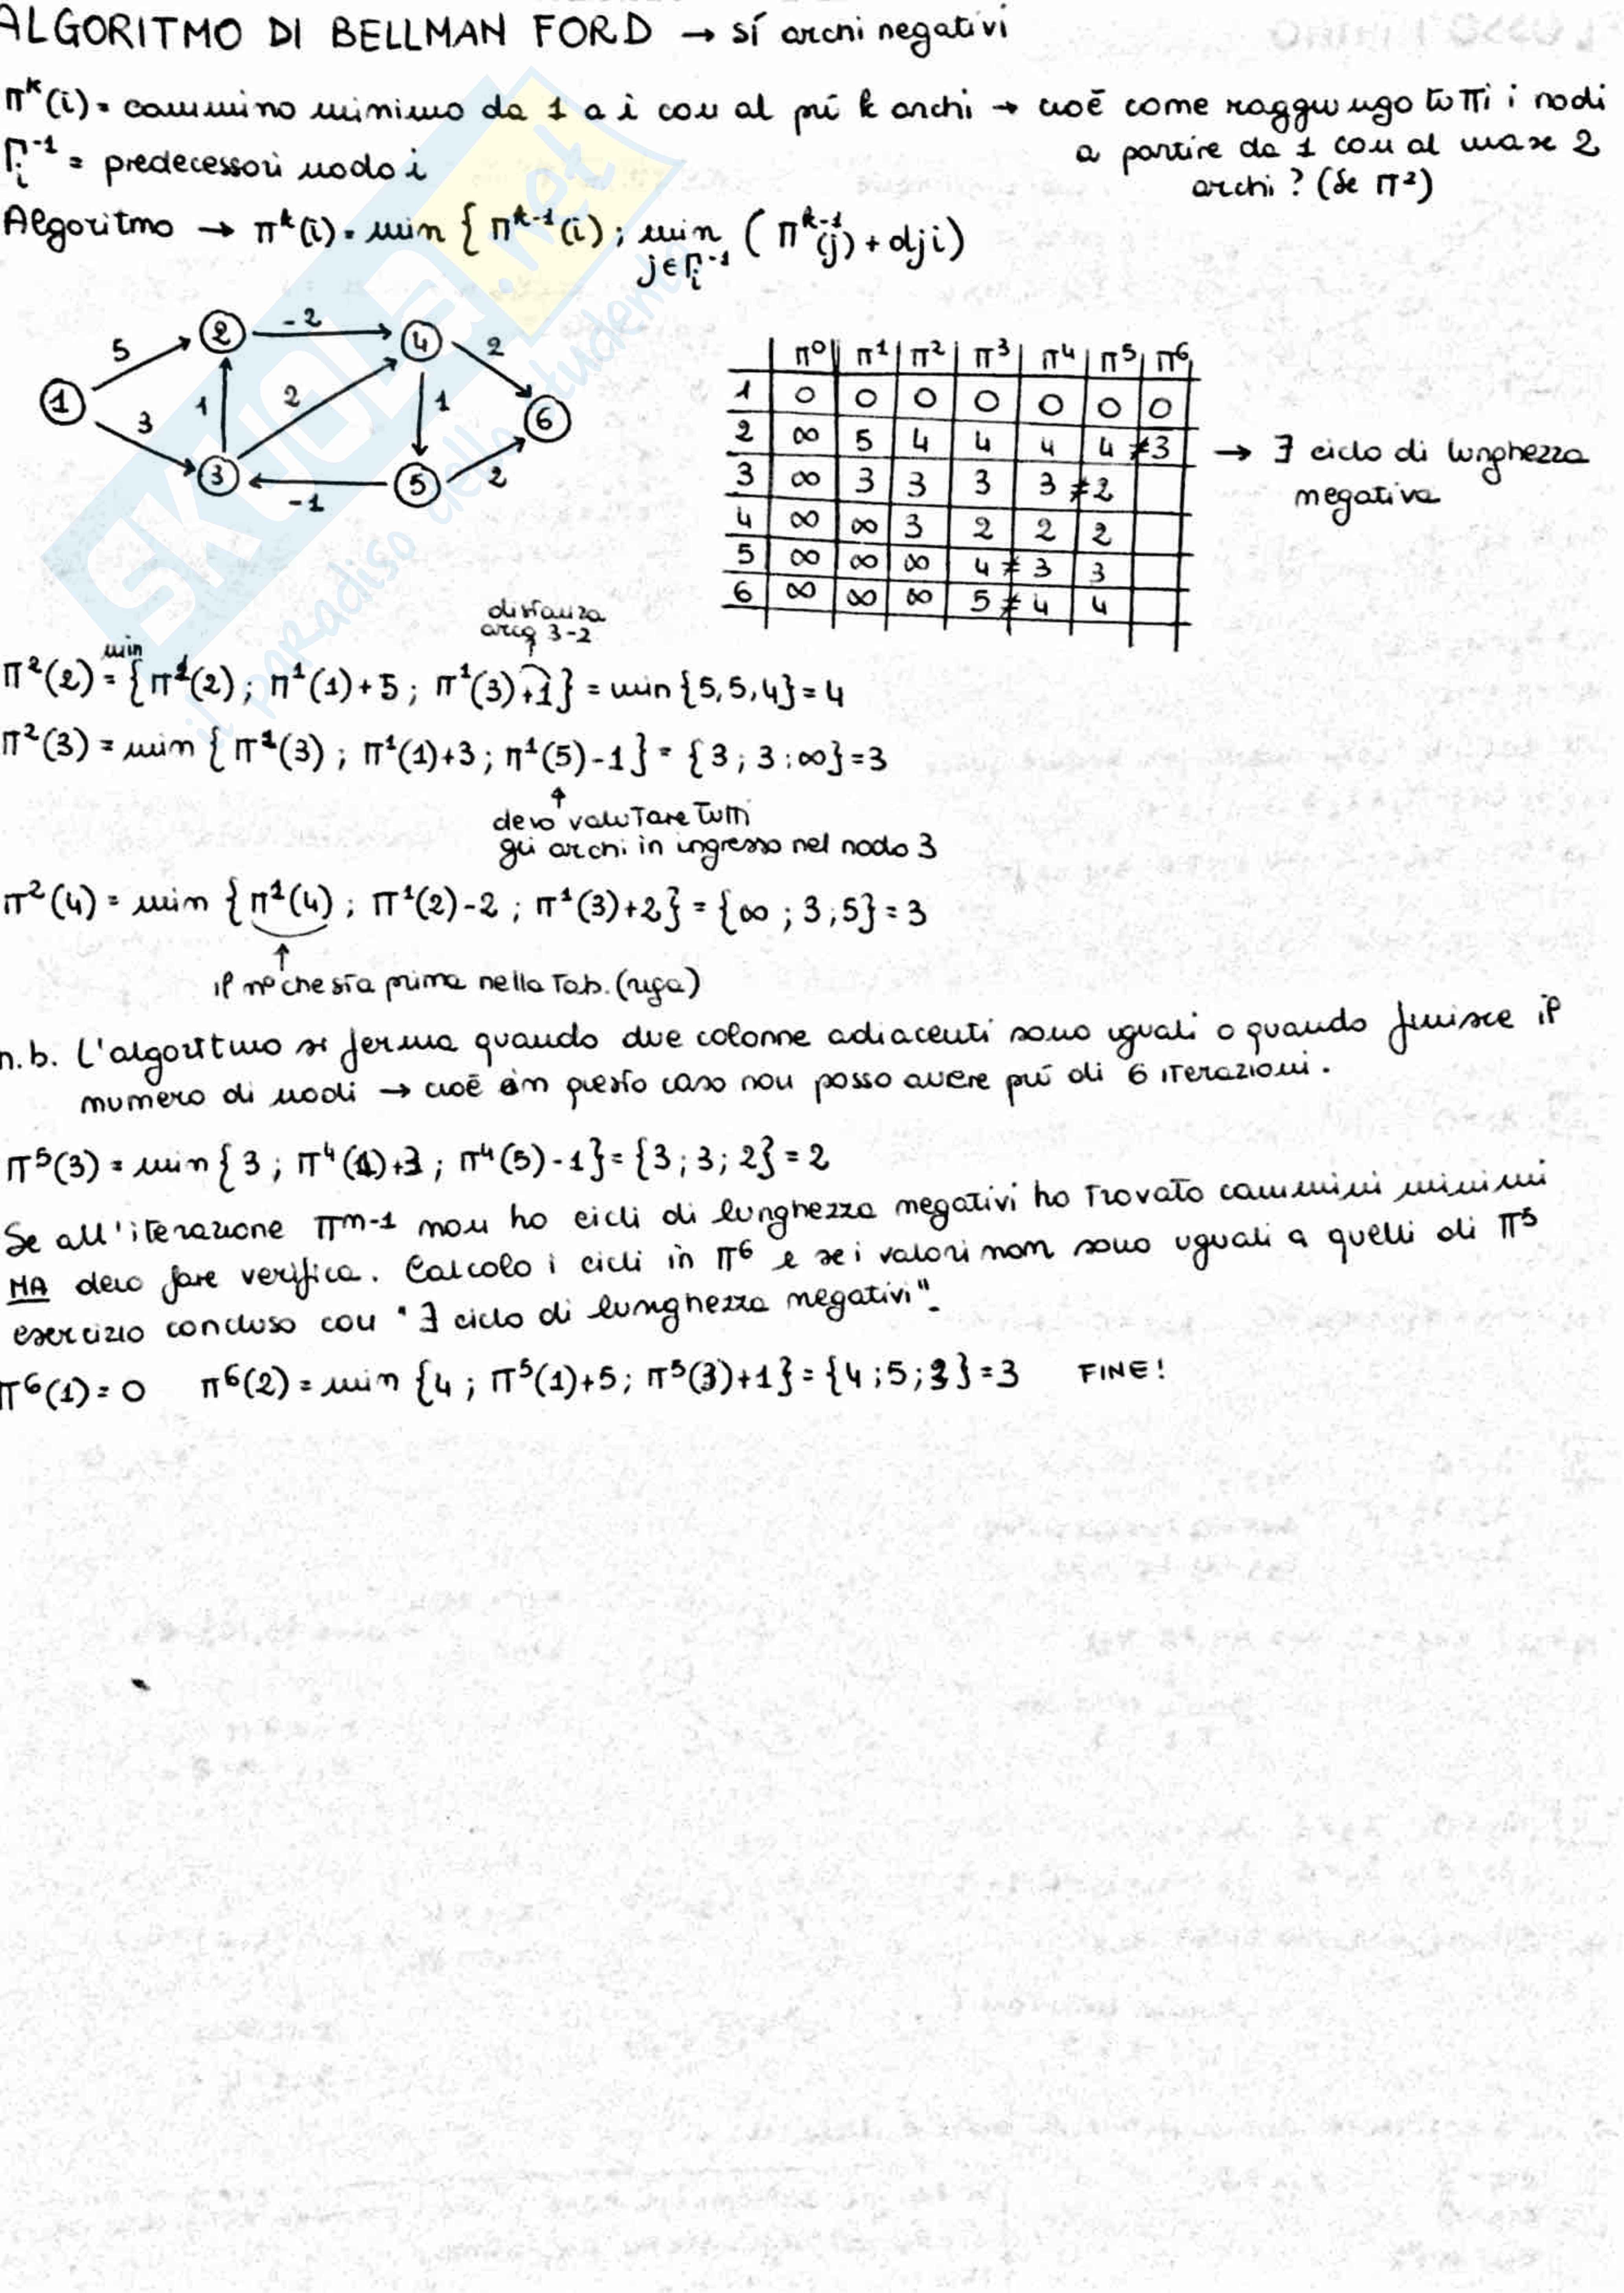 ALGORITMO DI BELLMAN FORD → sí archi negativi
π^k(i) = cammino minimo da 1 a i con al più k archi → cioè come raggiungo tutti i nodi
a partire da 1 con al max 2
archi? (se π²)
Γi^-1 = predecessori nodo i
Algoritmo → π^k(i) = min { π^k-1(i) ; min j∈Γi^-1 ( π^k-1(j) + dji)
5 2 -2 4 2
1 1 2 1 6
3 3 -1 5 2
π⁰ π¹ π² π³ π⁴ π⁵ π⁶
1 0 0 0 0 0 0 0
2 ∞ 5 4 4 4 4 ≠3 → ∃ ciclo di lunghezza
negativa
3 ∞ 3 3 3 3 ≠2
4 ∞ ∞ 3 2 2 2
5 ∞ ∞ ∞ 4 ≠ 3 3
6 ∞ ∞ ∞ 5 ≠ 4 4
distanza
arco 3-2
π²(2) = min { π¹(2) ; π¹(1)+5 ; π¹(3)+1 } = min {5,5,4} = 4
π²(3) = min { π¹(3) ; π¹(1)+3 ; π¹(5)-1 } = {3 ; 3 ; ∞} = 3
↑
devo valutare tutti
gli archi in ingresso nel nodo 3
π²(4) = min { π¹(4) ; π¹(2)-2 ; π¹(3)+2 } = {∞ ; 3 ; 5} = 3
↑
il n° che sta prima nella Tab. (riga)
n.b. L'algoritmo si ferma quando due colonne adiacenti sono uguali o quando finisce il
numero di nodi → cioè in questo caso non posso avere più di 6 iterazioni.
π⁵(3) = min { 3 ; π⁴(1)+3 ; π⁴(5)-1 } = {3 ; 3 ; 2} = 2
Se all'iterazione π^n-1 non ho cicli di lunghezza negativi ho trovato cammini minimi
MA devo fare verifica. Calcolo i cicli in π⁶ e se i valori non sono uguali a quelli di π⁵
esercizio concluso con "∃ ciclo di lunghezza negativi".
π⁶(1) = 0 π⁶(2) = min {4 ; π⁵(1)+5 ; π⁵(3)+1} = {4 ; 5 ; 3} = 3 FINE!
SKUOLA.net
il paradiso dello studente